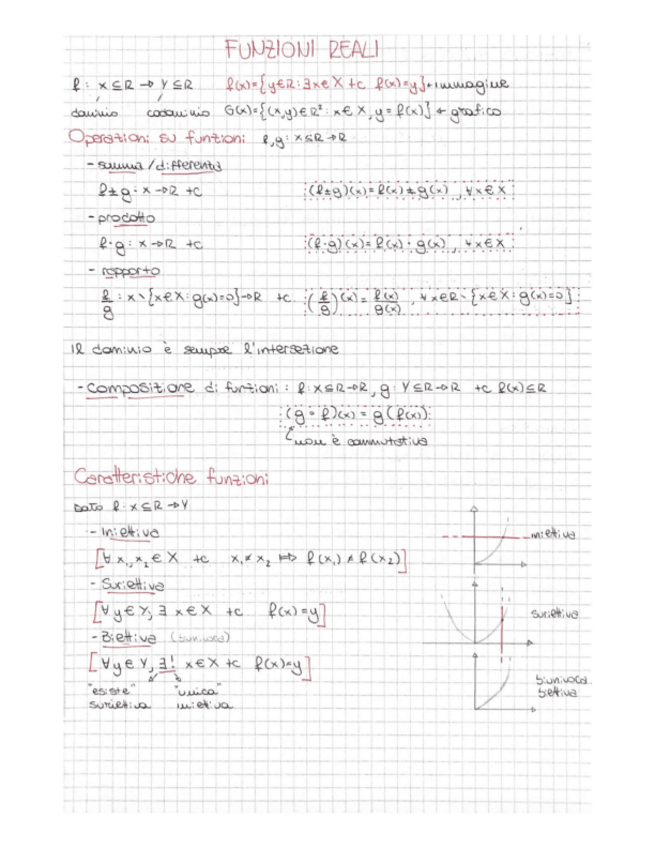 FUNZIONI REALI
f: X⊆R → Y⊆R f(x)={y∈R:∃x∈X tc f(x)=y}→immagine
dominio codominio G(x)={(x,y)∈R²: x∈X, y=f(x)} ← grafico
Operazioni su funzioni f,g: X⊆R→R
- somma/differenza
f±g: X→R tc (f±g)(x)=f(x)±g(x), ∀x∈X
- prodotto
f·g: X→R tc (f·g)(x)=f(x)·g(x), ∀x∈X
- rapporto
f/g : X\{x∈X:g(x)=0}→R tc (f/g)(x)=f(x)/g(x), ∀x∈R\{x∈X:g(x)=0}
Il dominio è sempre l'intersezione
- composizione di funzioni: f:X⊆R→R, g:Y⊆R→R tc f(x)⊆R
(g∘f)(x)=g(f(x))
non è commutativa
Caratteristiche funzioni
Dato f: X⊆R→Y
- Iniettiva
[∀x₁,x₂∈X tc x₁≠x₂ ⟹ f(x₁)≠f(x₂)]
iniettiva
- Suriettiva
[∀y∈Y, ∃ x∈X tc f(x)=y]
suriettiva
- Biettiva (biunivoca)
[∀y∈Y, ∃! x∈X tc f(x)=y]
"esiste" "unica"
suriettiva iniettiva
biunivoca
biettiva